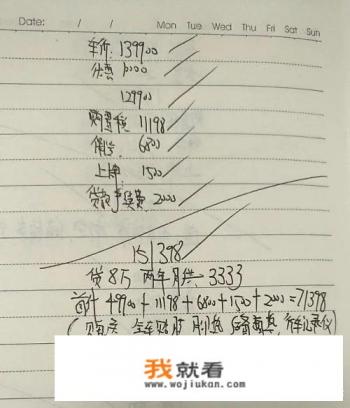 Date: / / Mon Tue Wed Thu Fri Sat Sun
车价: 139900
优惠 10000
129900
购置税 11198
保险: 6800
上牌: 1500
贷款手续费 2000
151398
贷8万 两年月供: 3333
首付 49900+11198+6800+1500+2000=71398
全车贴膜
行车记录仪)
我就看看
www.wojiukan.com